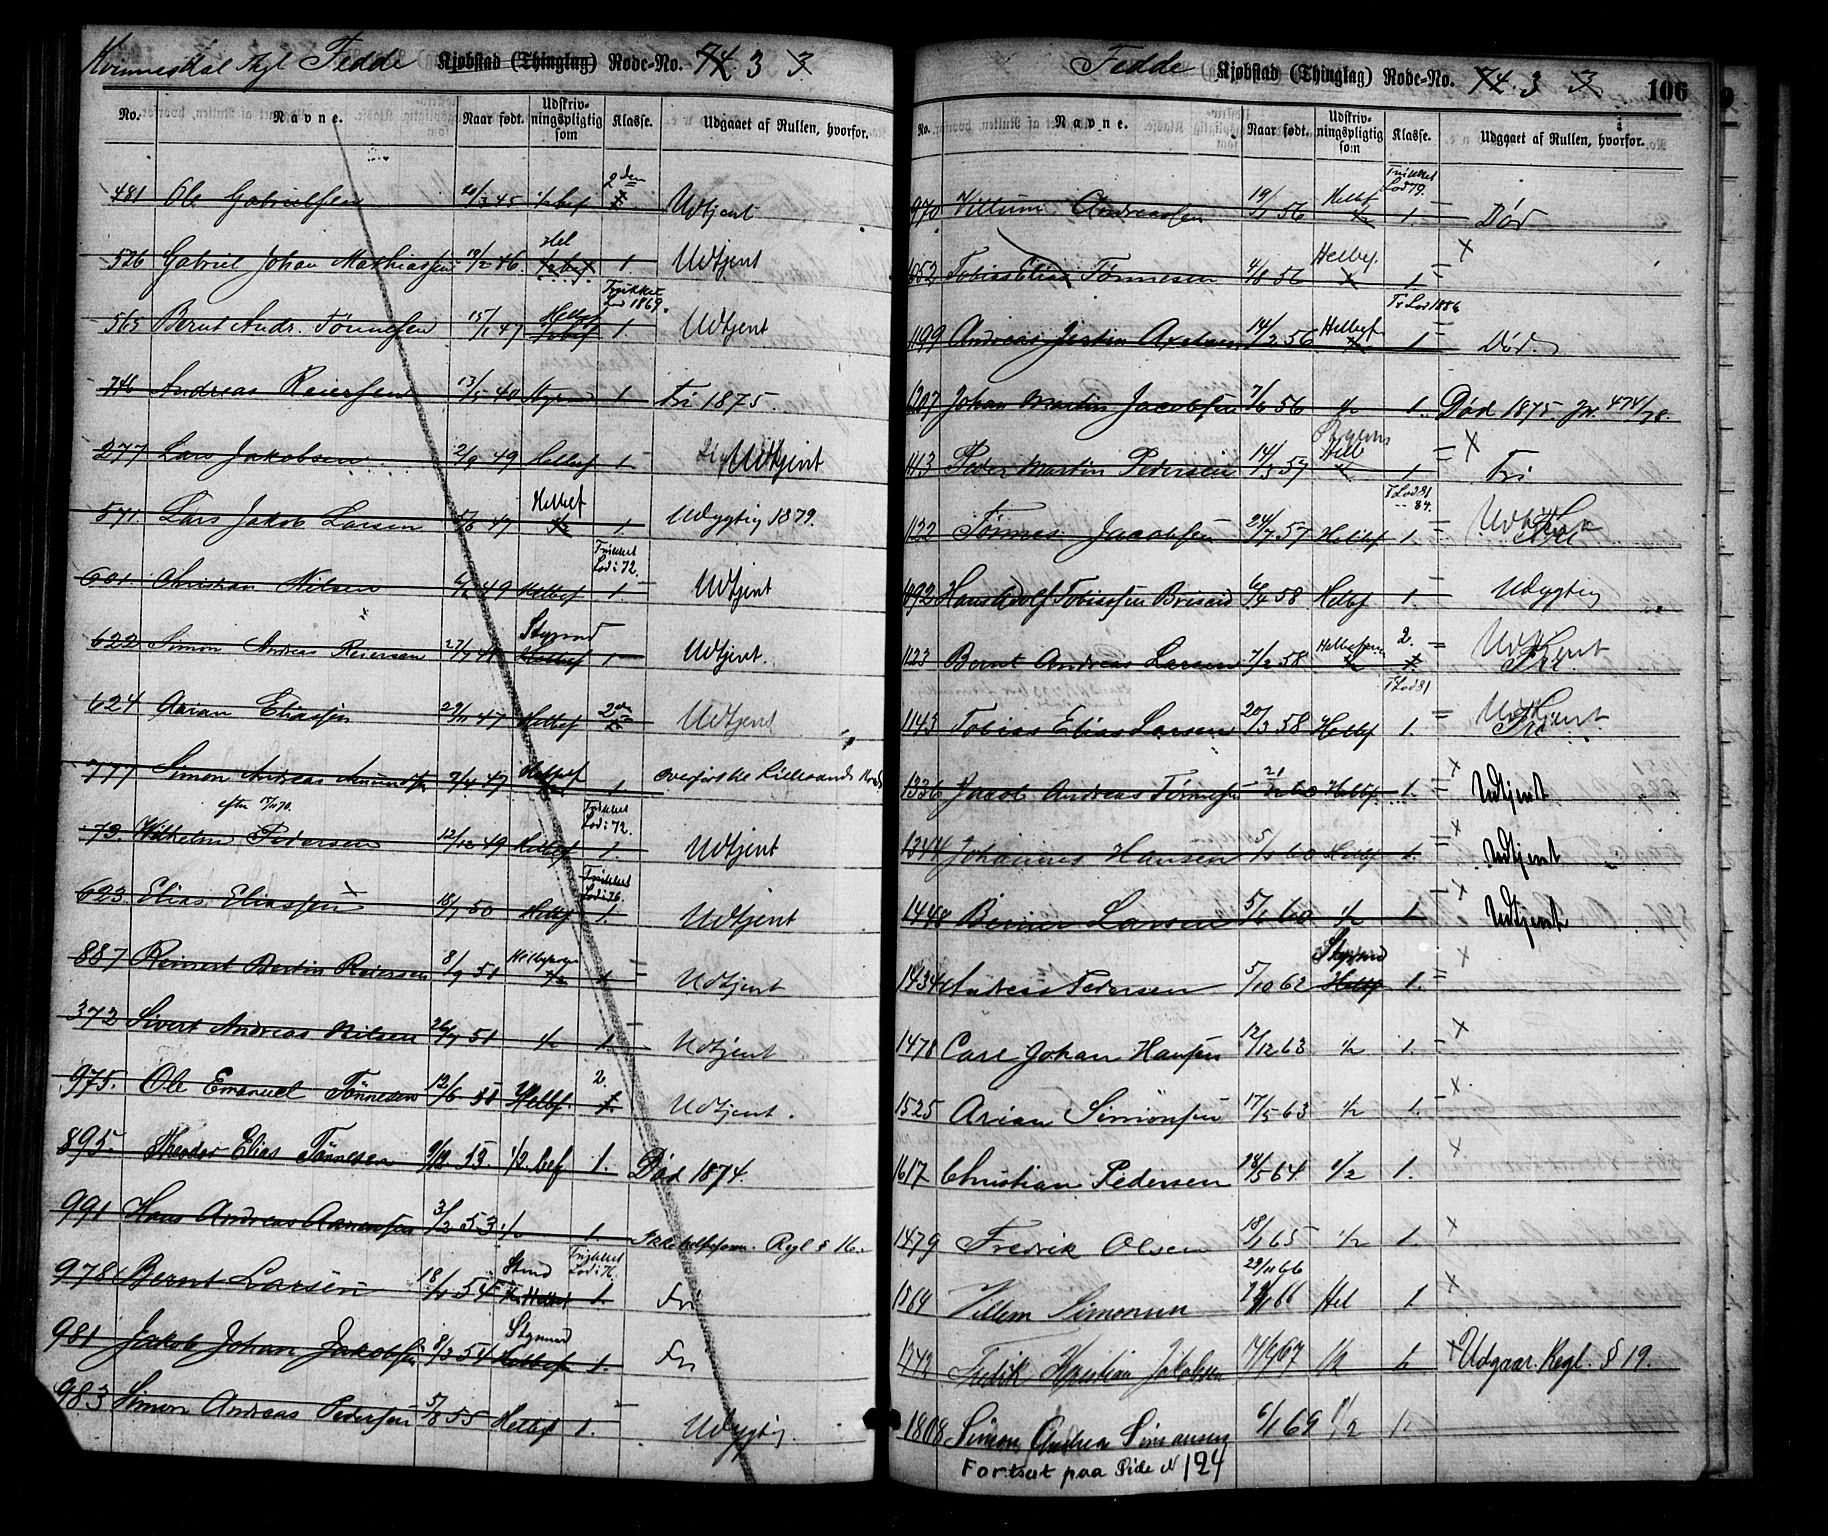 Kvinnesdal Thgl Fedde Kjøbstad (Thinglag) Rode-No. 74 3 3
No. Navne. Naar født. Udskrivningspligtig som Klasse. Udgaaet af Rullen, hvorfor.
481 Ole Gabrielsen 20/3 45 1/2 bef 2den Udtjent
526 Gabriel Johan Mathiassen 19/2 46 Hel 1/2 bef 1 Udtjent
565 Bernt Andr. Tönnesen 15/1 47 Helbef 1/2 bef Trukket Lod 1869. 1 Udtjent
746 Andreas Reiersen 13/5 40 Styrm 1. Fri 1875
277 Lars Jakobsen 2/9 49 Helbef 1 Udtjent
571. Lars Jakob Larsen 5/6 47 Helbef 1/2 1 Udygtig 1879.
601. Christian Nilsen 6/2 49 Helbef Trukket Lod i 72. 1. Udtjent
622 Simon Andreas Reiersen 27/7 47 Styrmd Helbef 1 Udtjent.
624 Arian Eliassen 29/11 47 Helbef 2den Udtjent
777 Simon Andreas Amundsen 9/4 47 Helbef 1 Overført til Lillesands Kreds
efter 17/11 70.
79. Wilhelm Pedersen 12/12 49 Helbef Trukket Lod i 72. 1. Udtjent
623. Elias Eliassen 18/7 50 Helbf Trukket Lod i 76. 1. Udtjent
887 Reinert Bertin Reiersen 8/9 51 1/2 1. Udtjent
372 Sivert Andreas Nilsen 26/7 51 1/2 1. Udtjent
975. Ole Emanuel Tönnesen 12/6 51 Helbf. 2. 1. Udtjent.
895. Theodor Elias Tönnesen 9/12 53. 1/2. bef 1. Död 1874.
991 Hans Andreas Aanensen 3/2 53 1/2 1 Ikke helbefaren. Regl § 16.
978 Bernt Larsen 18/11 54 Stmd 1/2 Helbef Trukket Lod i 76. 1. Fri
981 Jakob Johan Jakobsen 9/3 54 Styrmd Helbef 1. Fri
983 Simon Andreas Pedersen 5/8 55 Helbf 1. Udygtig.
Fedde Kjøbstad (Thinglag) Rode-No. 74. 3 3 106
No. Navne. Naar født. Udskrivningspligtig som Klasse. Udgaaet af Rullen, hvorfor.
970 Villum Andreassen 19/1 56 Helbf 1/2 Trukket Lod 79. 1. Död
1052 Tobias Elias Tönnesen 4/8 56 Helbef. 1 x
1199 Andreas Justin Axelsen 14/2 56 Helbef 1/2 Tr Lod 1886 1 Död.
1207 Johan Martin Jacobsen 7/6 56 1/2 1. Död 1875. Jr. 474/78.
1113 Peder Martin Pedersen 14/3 57 Helb 1/2 1 x Fri
1122 Tönnes Jacobsen 24/7 57 Helbef T Lod 81 84. 1. Udtjent Fri
1092 Hans Adolf Tobiassen Briseid 6/4 58 Helbf 1 Udygtig
1123 Bernt Andreas Larsen 7/2 58 Helbefaren 1/2 2. 1. Udtjent Fri.
1143 Tobias Elias Larsen 20/3 58 Helbf T Lod 81 1. Udtjent Fri
1336 Jacob Andreas Tönnesen 21/12 60 Helbf 1. x Udtjent
1344 Johannes Hansen 5/1 60 Helbf 1. x Udtjent
1448 Berner Larsen 5/1 60 1/2 1. x Udtjent
1434 Andreas Pedersen 5/10 62 Styrmd Helbf 1. x
1478 Carl Johan Hansen 12/12 63 1/2 1. x
1525 Arian Simonsen 17/5 63 1/2 1. x
1617 Christian Pedersen 18/5 64. 1/2 1. x
1479 Fredrik Olsen 18/1 65 1/2 1. x
29/11 66
1519 Villem Simonsen 29/11 66 Hel 1. x
1742 Fredik Kristian Jakobsen 14/9 67 1/2 1. x Udgaar. Regl. § 19.
1808 Simon Andrea Simonsen 6/1 69 1/2 1.
Fortsat paa Side N 124